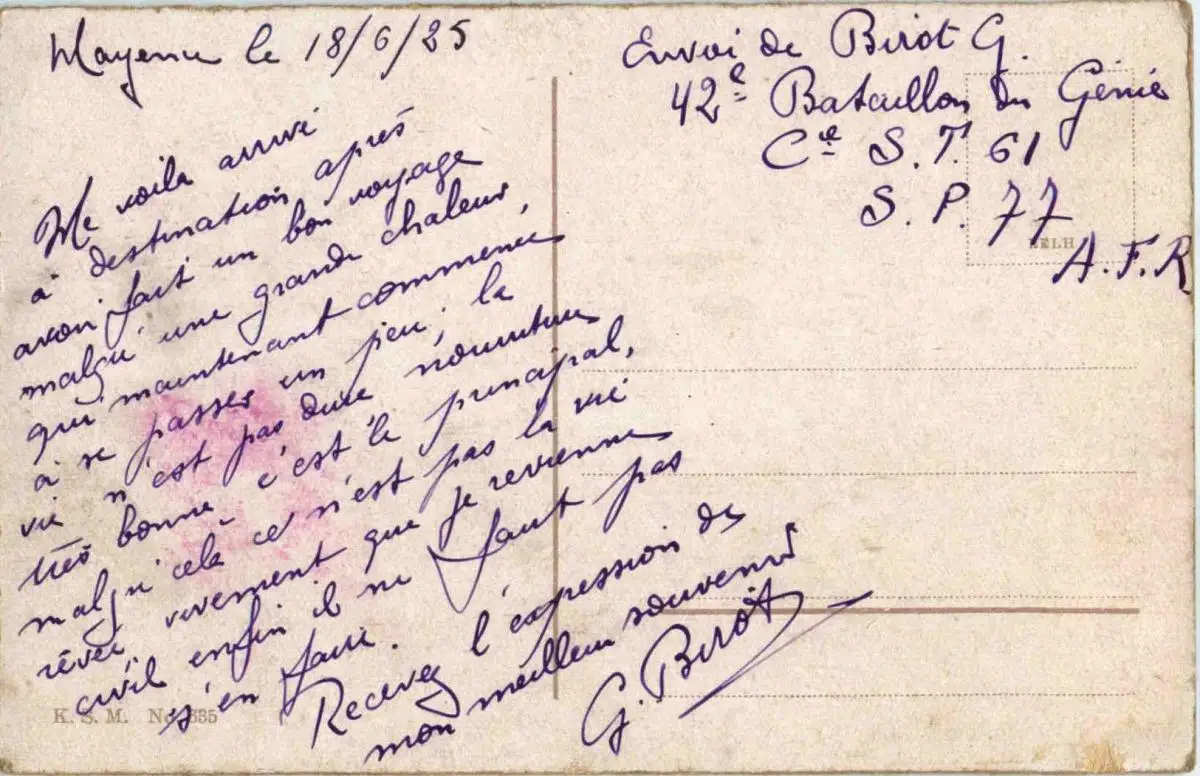 Mayence le 18/6/25
Me voila arrivé
à destination après
avoir fait un bon voyage
malgré une grande chaleur,
qui maintenant commence
à se passer un peu; la
vie n'est pas dure nourriture
très bonne, c'est le principal,
malgré cela ce n'est pas la vie
rêvée, vivement que je revienne
civil enfin il ne faut pas
s'en faire.
Recevez l'expession de
mon meilleur souvenir
G. Birot
Envoi de Birot G.
42e Bataillon du Génie
Cie S. T. 61
S. P. 77
A. F. R
K. S. M. No